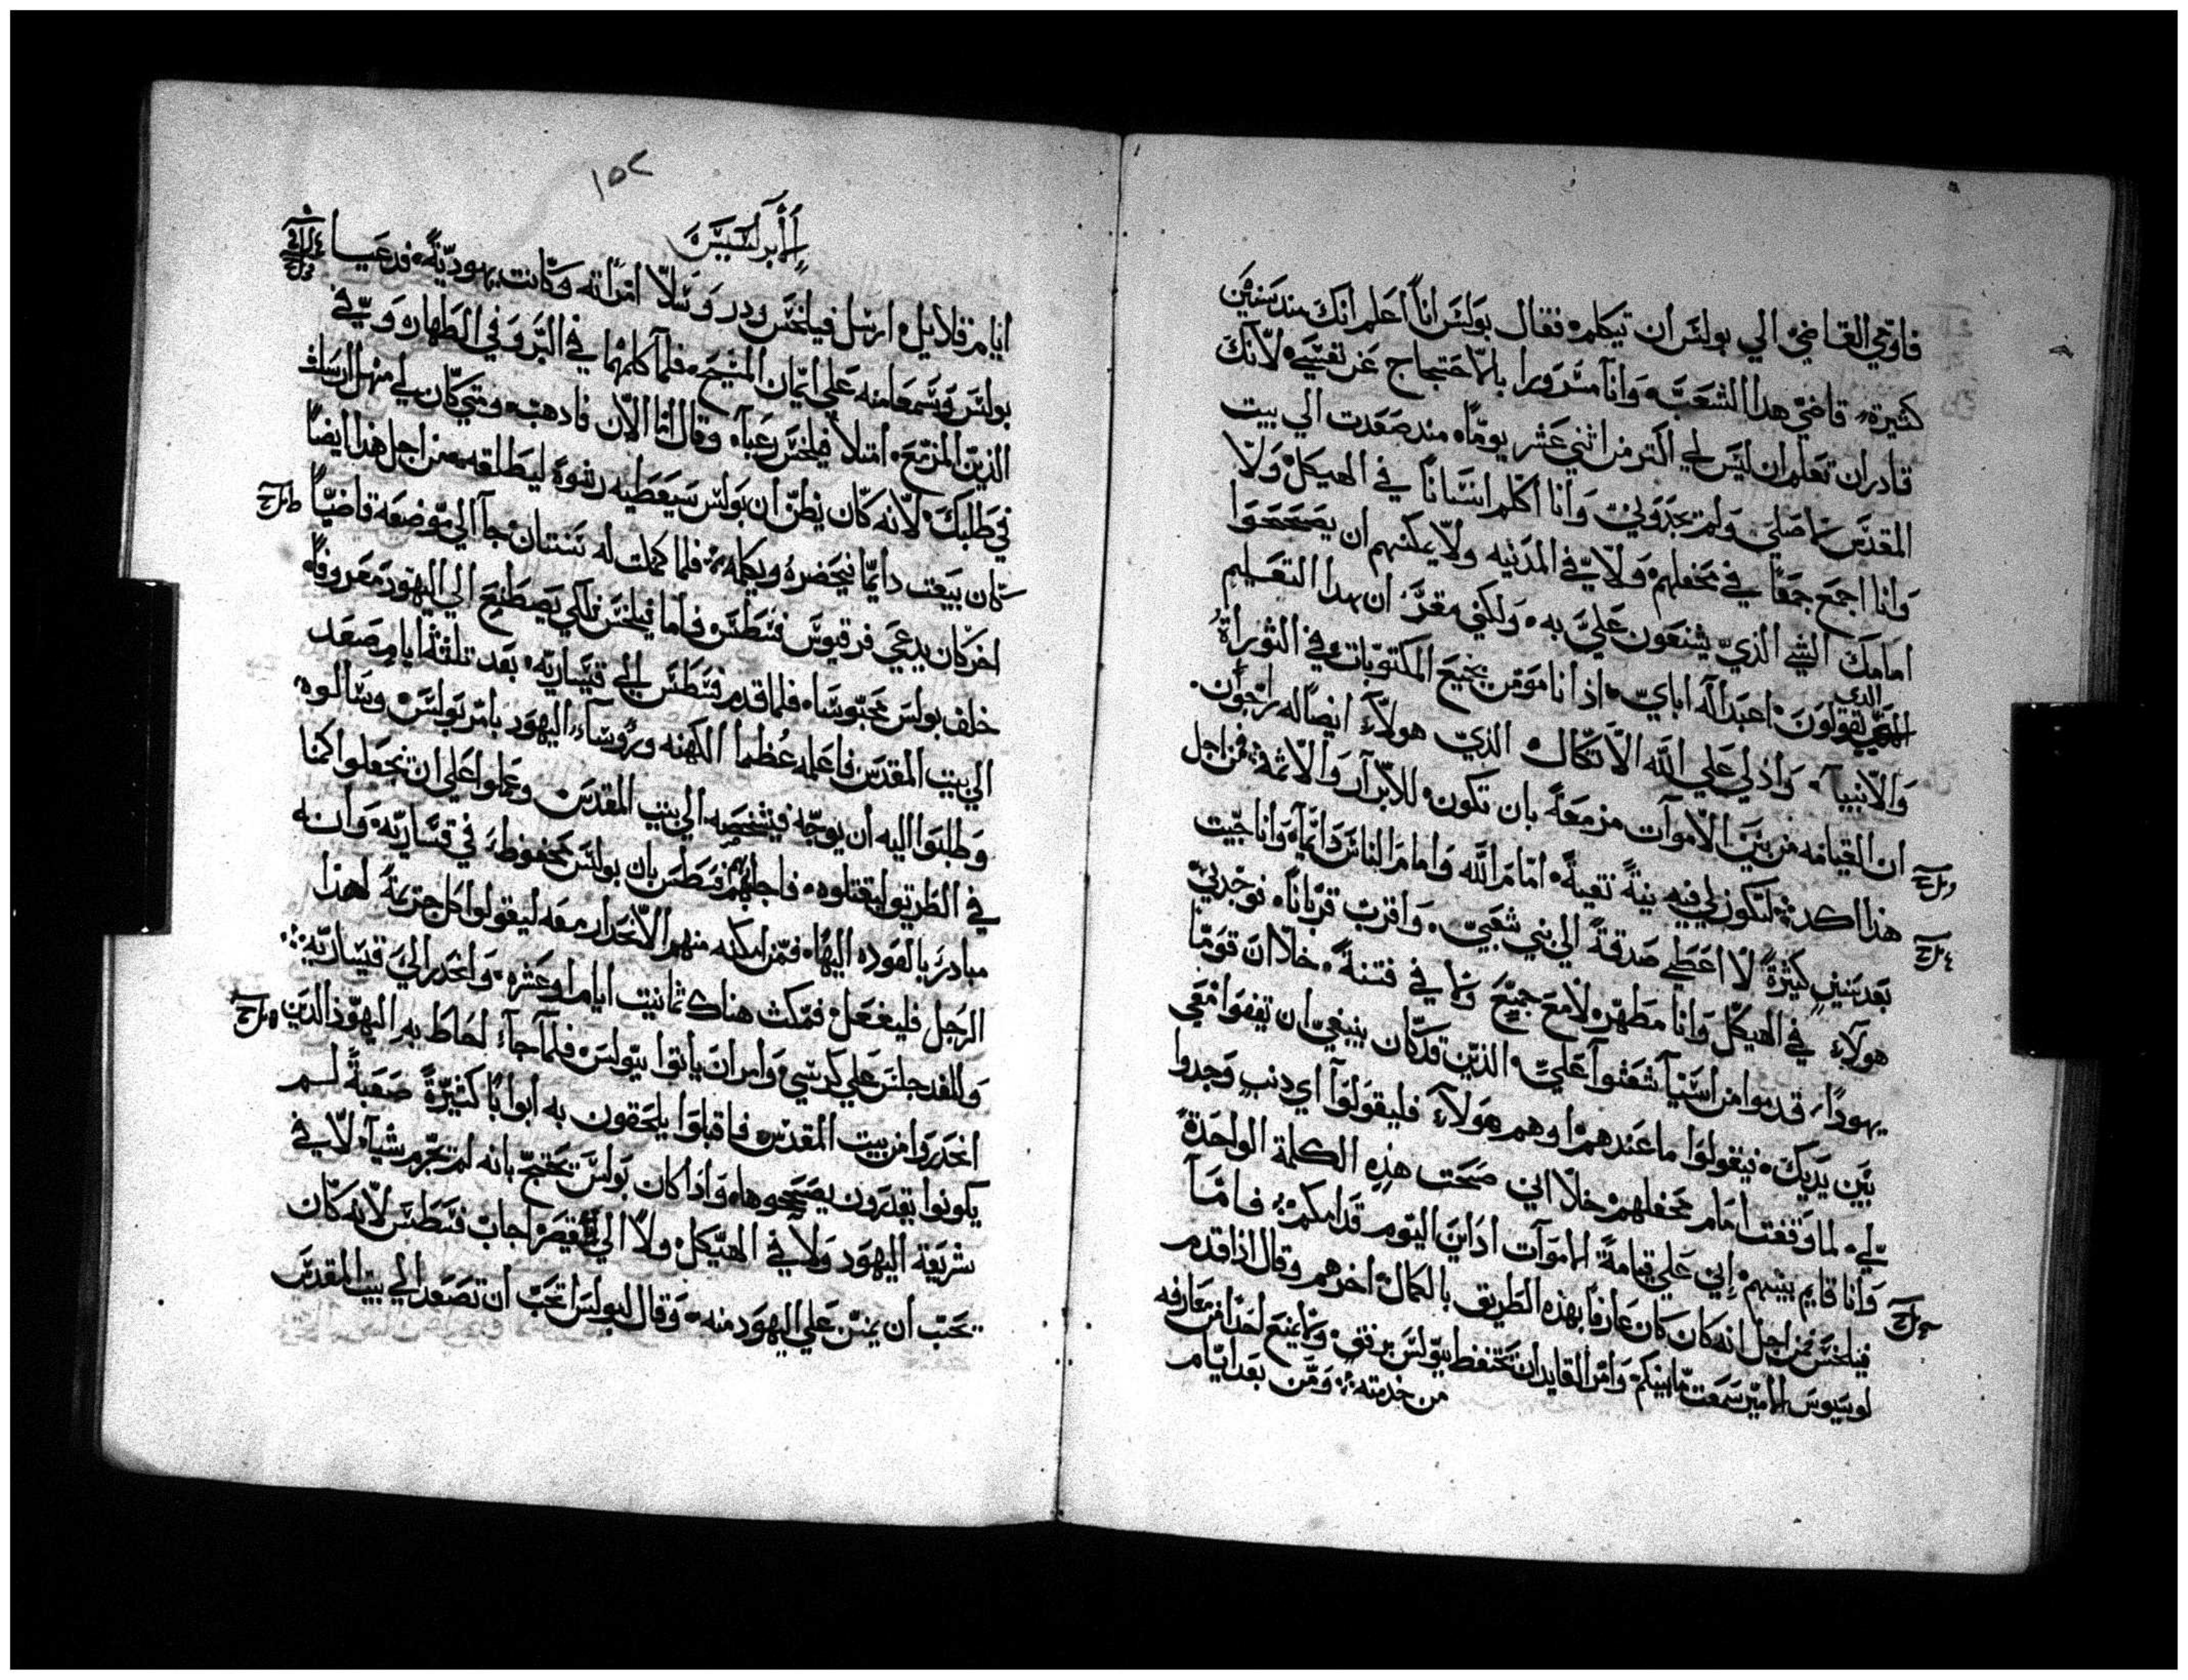 فاوحي القاضي الي بولس ان تيكلم فقال بولس انا اعلم انك مند سنين
كثيره قاضي هدا الشعب وانا مسرورا بالاحتجاج عن نفسي لانك
قادر ان تعلم ان ليس لي اكتر من اثني عشر يوما مند صعدت الي بيت
المقدس لاصلي ولم يجدوني وانا اكلم انسانا في الهيكل ولا
وانا اجمع جمعا في محفلهم ولا في المدنيه ولا يمكنهم ان يصححوا
امامك الشي الذي يشنعون علي به ولكني مقر ان بهدا التعليم
الدي يقولون اعبد اله اباي اذ انا مومن بجميع المكتوبات في التوراة
والانبيا واذ لي علي الله الاتكال الذي هولاء ايضا له راجون
ان القيامه من بين الاموات مزمعة بان تكون للابرار والاثمة فمن اجل
هذا اكد لتكون لي فيه نية نقية امام الله وامام الناس دايما وانا جيت
بعد سنين كثيرة لا اعطي صدقة الي بني شعبي واقرب قربانا نوجدني
هولاء في الهيكل وانا مطهر لا مع جميع ولا في فتنة خلا ان قوما
يهودا قدموا من اسيا شغثوا علي الذين قد كان ينبغي ان تقفوا معي
بين يديك نيقولوا ما عندهم اوهم هولاء فليقولوا اي دنب وجدوا
لي لما وقفت امام محفلهم خلا اني صحت هذه الكلمة الواحدة
وانا قايم بينهم اني علي قيامة الاموات ادان اليوم قدامكم فاما
فيلخس فمن اجل انه كان كان عارفا بهذه الطريق بالكمال اخرهم وقال اذا قدم
لوسيوس الامير سمعت ما بينكم وامر القايد ان تحتفظ ببولس برفق ولا يمنع احدا من معارفه
من خدمته ومن بعد ايام
١٥٢
الابركسيس
ايام قلايل ارسل فيلخس ودر وسلا امراته وكانت يهودية فدعيا
بولس وسمعا منه علي ايمان المسيح فلما كلمهما في البر وفي الطهاره وفي
الدين المزمع امتلا فيلخس رعبا وقال اما الان فادهب ومتي كان لي مهل ارسلت
في طلبك لانه كان يظن ان بولس سيعطيه رشوة ليطلقه من اجل هذا ايضا
كان يبعت دايما فيحضره ويكلمه فلما كملت له سنتان جا الي موضعه قاضيا
اخر كان يدعي فرقيوس فسطس فاما فيلخس فلكي يصطنع الي اليهود معروفا
خلف بولس محبوسا فلما قدم فسطس الي قيساريه بعد تلتة ايام صعد
الي بيت المقدس فاعلمه عظما الكهنه ورؤساء اليهود بامر بولس وسالوه
وطلبوا اليه ان يوجه فيشخصه الي بيت المقدس وعملوا علي ان تجعلوا اكمنا
في الطريق ليقتلوه فاجابهم فسطس بان بولس محفوظ في قيساريه وانه
مبادر بالعوده اليها فمن امكنه منهم الانحدار معه ليقولوا كل جريمة لهذا
الرجل فليفعل فمكث هناك ثمانيت ايام او عشره وانحدر الي قيساريه
وللغد جلس علي كرسي وامر ان ياتوا ببولس فلما جاء احاط به اليهود الذين
انحدروا من بيت المقدس فاقبلوا يلحقون به ابوابا كثيرة صعبة لم
يكونوا يقدرون يصححوها واذا كان بولس تحتج بانه لم تجرم شيا لا في
شريعة اليهود ولا في الهيكل ولا الي قيصر اجاب فسطس لانه كان
تحب ان يمنن علي اليهود منه وقال لبولس اتحب ان تصعد الي بيت المقدس